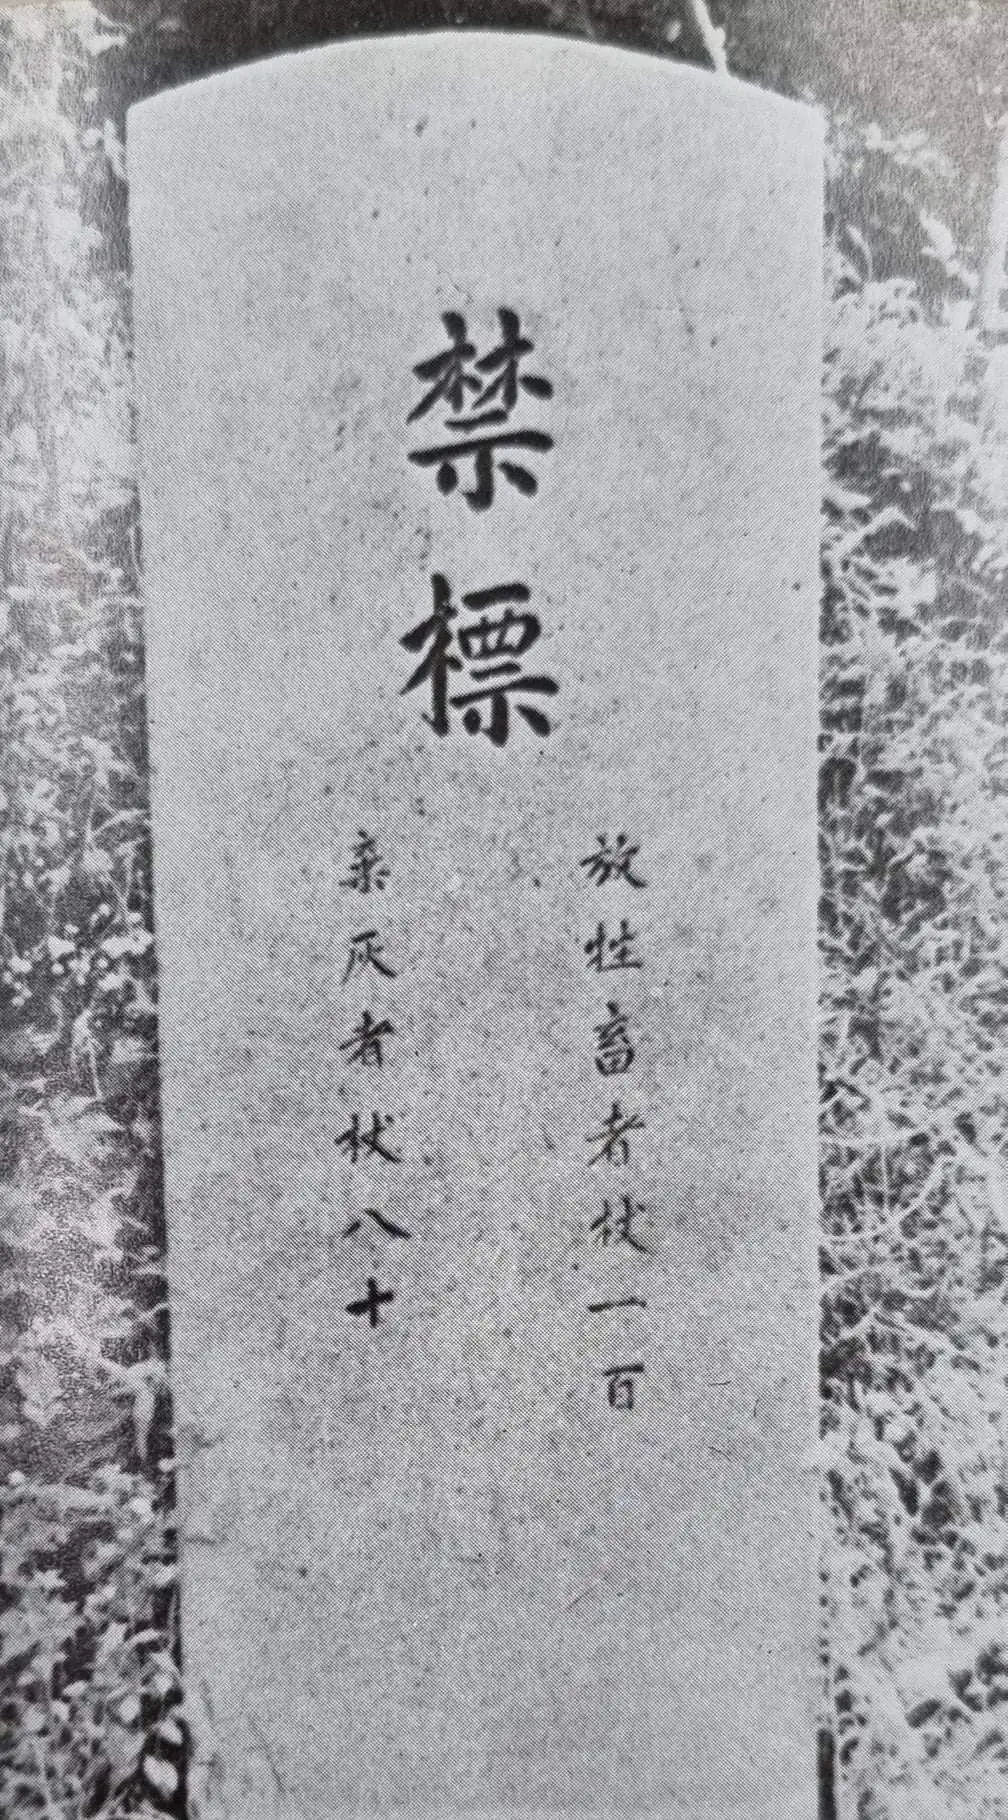 禁標
放牲畜者杖一百
棄灰者杖八十